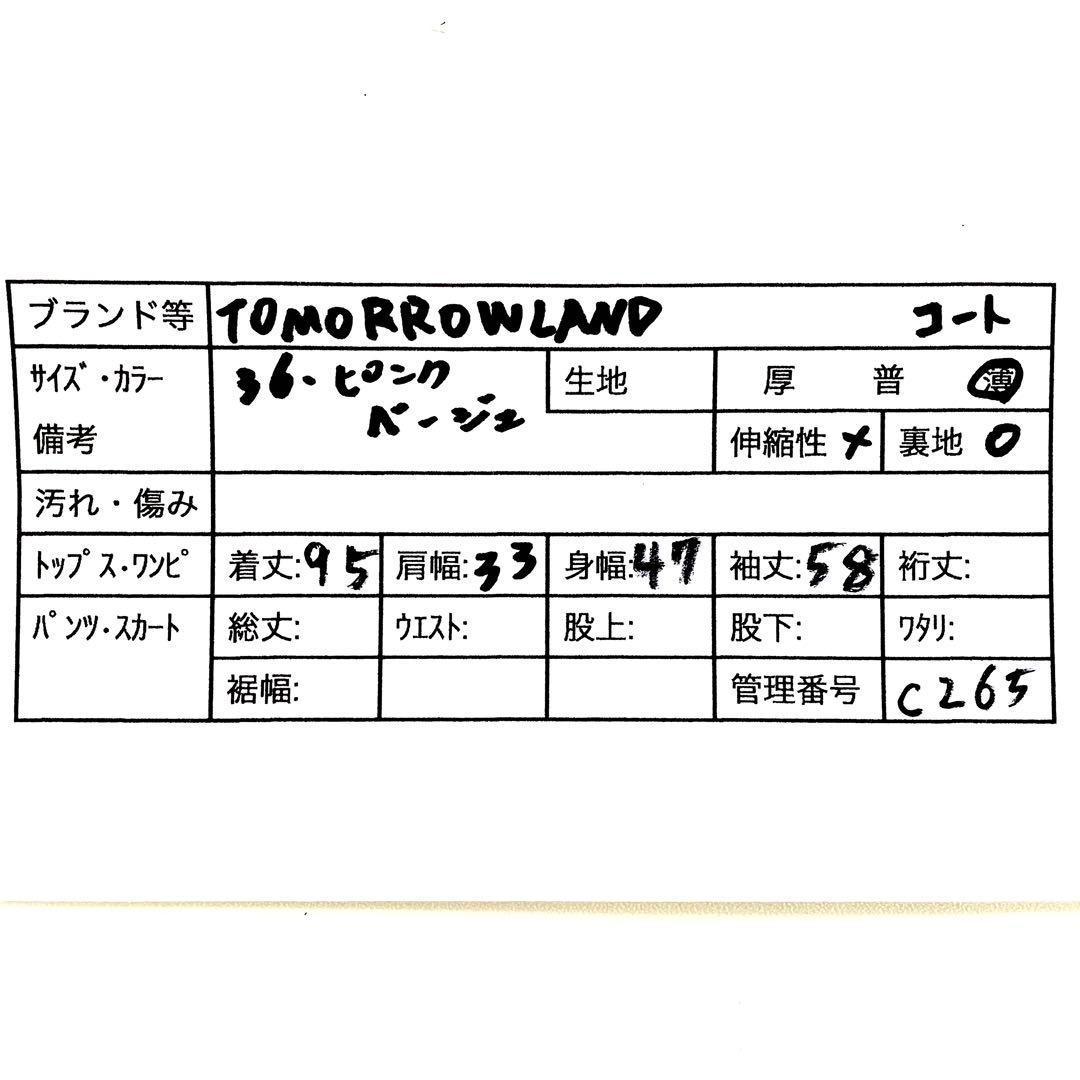 ブランド等 TOMORROWLAND コート
サイズ・カラー 36・ピンク 生地 厚 普 薄
ベージュ
備考 伸縮性 × 裏地 ○
汚れ・傷み
トップス・ワンピ 着丈:95 肩幅:33 身幅:47 袖丈:58 裄丈:
パンツ・スカート 総丈: ウエスト: 股上: 股下: ワタリ:
裾幅: 管理番号 C265